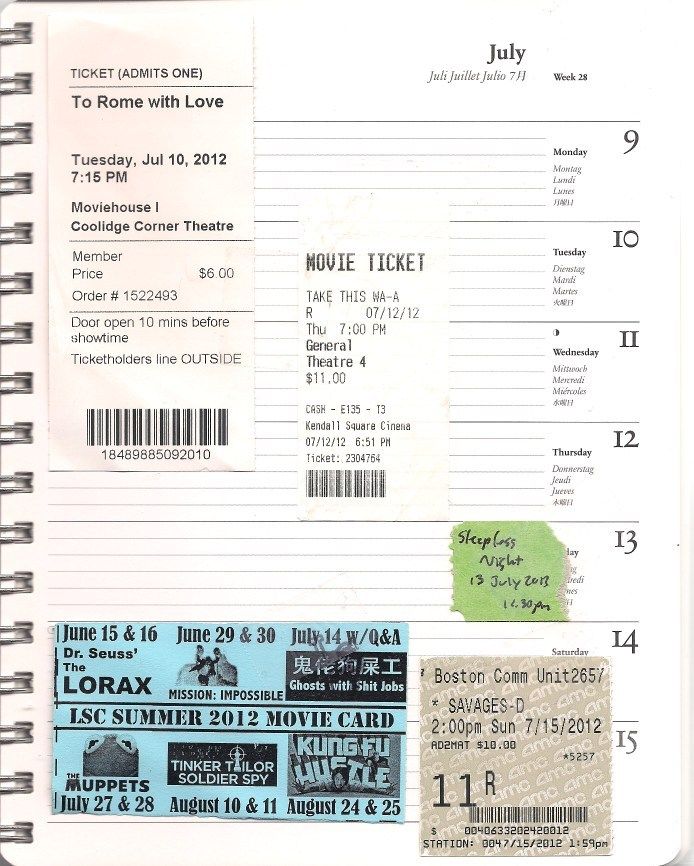 July
Juli Juillet Julio 7月
Week 28
TICKET (ADMITS ONE)
To Rome with Love
Tuesday, Jul 10, 2012
7:15 PM
Moviehouse I
Coolidge Corner Theatre
Member
Price $6.00
Order # 1522493
Door open 10 mins before
showtime
Ticketholders line OUTSIDE
18489885092010
MOVIE TICKET
TAKE THIS WA-A
R 07/12/12
Thu 7:00 PM
General
Theatre 4
$11.00
CASH - E135 - T3
Kendall Square Cinema
07/12/12 6:51 PM
Ticket: 2304764
Monday 9
Montag
Lundi
Lunes
月曜日
Tuesday 10
Dienstag
Mardi
Martes
火曜日
Wednesday 11
Mittwoch
Mercredi
Miércoles
水曜日
Thursday 12
Donnerstag
Jeudi
Jueves
木曜日
13
Sleepless
Night
13 July 2013
11.30pm
14
Saturday
15
June 15 & 16 June 29 & 30 July 14 w/Q&A
Dr. Seuss'
The
LORAX
MISSION: IMPOSSIBLE
Ghosts with Shit Jobs
LSC SUMMER 2012 MOVIE CARD
THE
MUPPETS
TINKER TAILOR
SOLDIER SPY
KUNG FU
HUSTLE
July 27 & 28 August 10 & 11 August 24 & 25
Boston Comm Unit2657
* SAVAGES-D
2:00pm Sun 7/15/2012
AD2MAT $10.00
*5257
11 R
$ 0040633202420012
STATION: 0047/15/2012 1:59pm